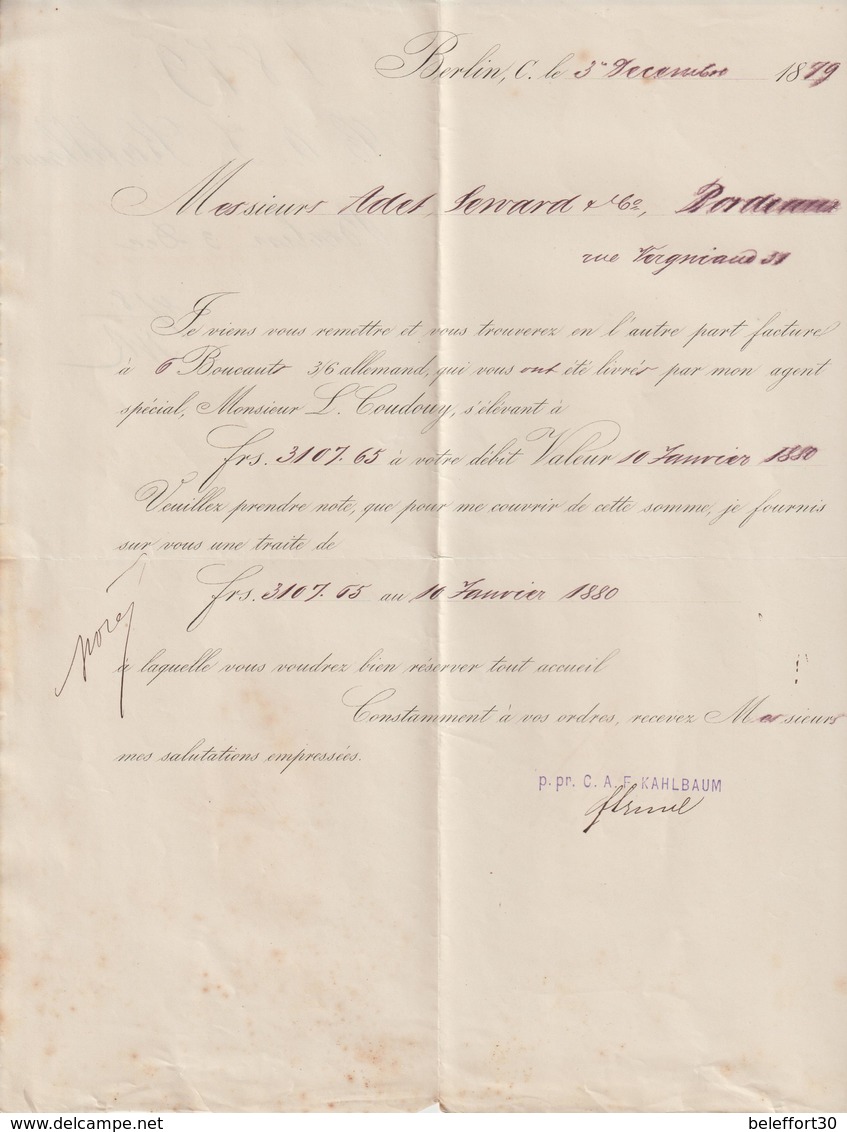 Berlin, C. le 3 Decembre 1879
Messieurs Adet, Seward & Co, Bordeaux
rue Vergniaud 31
Je viens vous remettre et vous trouverez en l'autre part facture
à 6 Boucauts 3/6 allemand, qui vous ont été livrés par mon agent
spécial, Monsieur L. Coudouy, s'élevant à
frs. 3107.65 à votre débit Valeur 10 Janvier 1880
Veuillez prendre note, que pour me couvrir de cette somme, je fournis
sur vous une traite de
frs. 3107.65 au 10 Janvier 1880
à laquelle vous voudrez bien réserver tout accueil
Constamment à vos ordres, recevez Messieurs
mes salutations empressées.
p. pr. C. A. F. KAHLBAUM
beleffort30